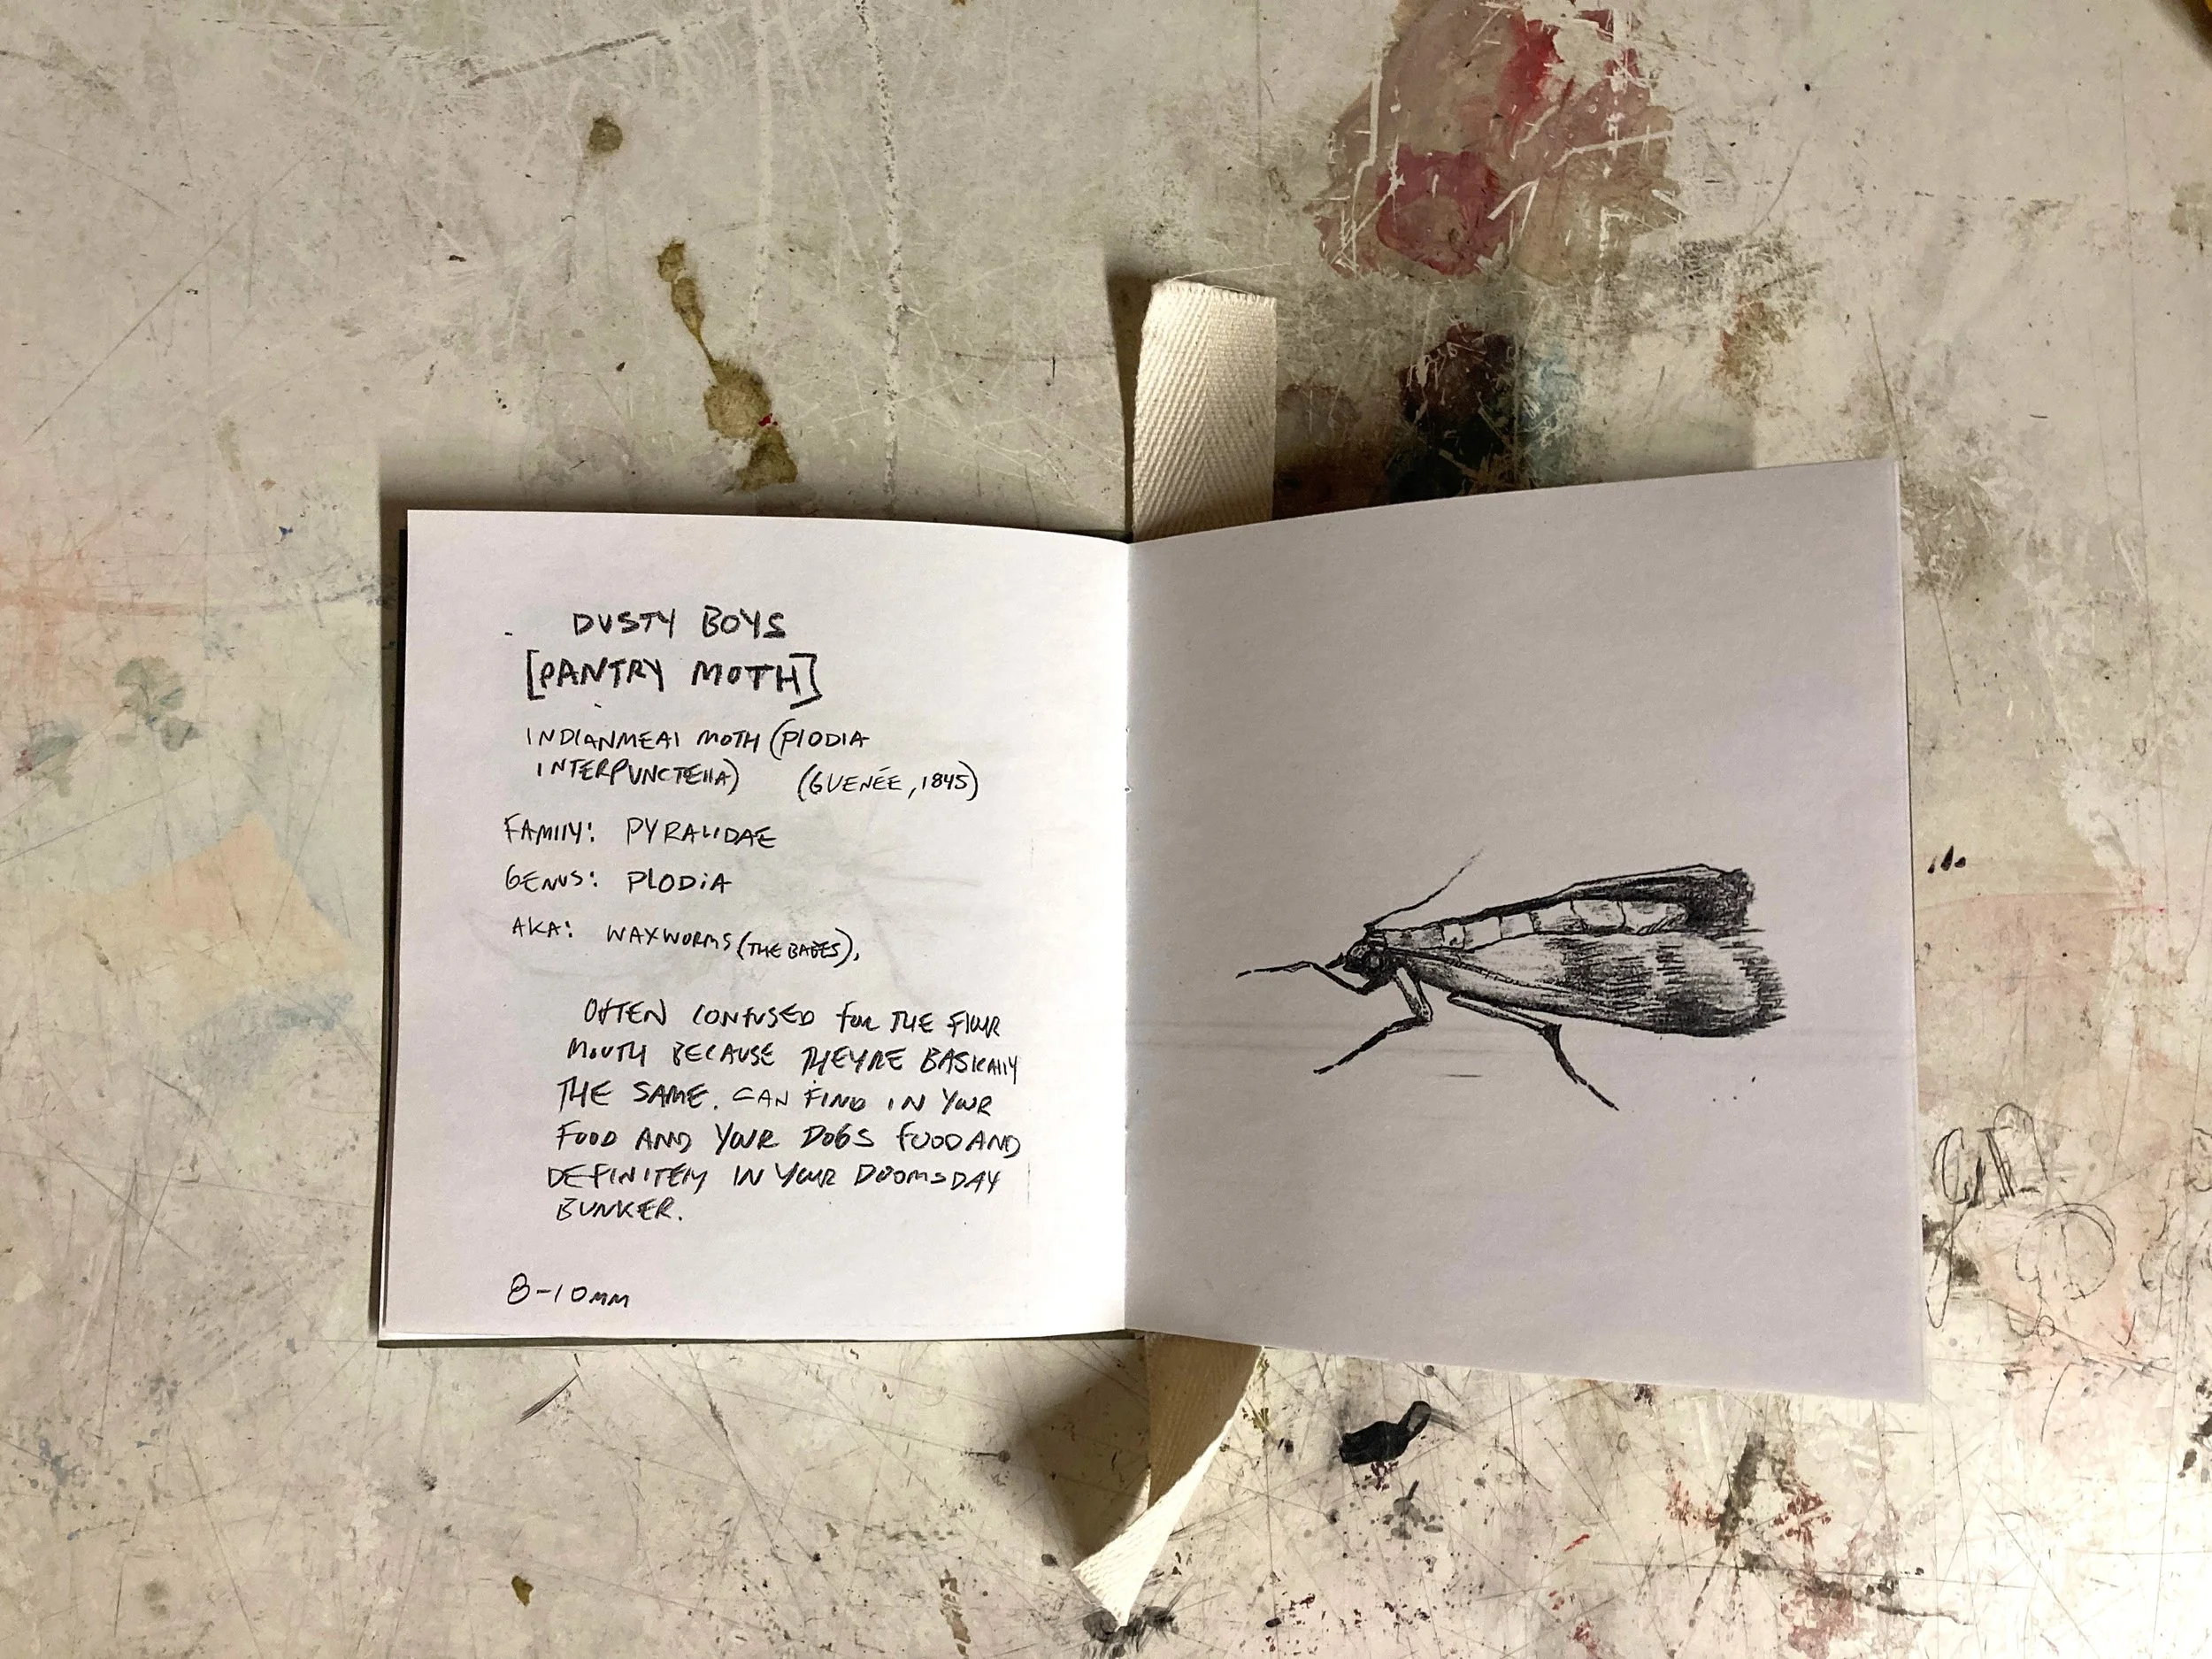 DUSTY BOYS
[PANTRY MOTH]
INDIANMEAl MOTH (PlODIA
INTERPUNCTEllA) (GUENÉE, 1845)
FAMIlY: PYRALIDAE
GENUS: PLODiA
AKA: WAXWORMS (THE BABES),
OFTEN CONFUSED for THE FlOUR
MOUTH BECAUSE THEYRE BASICAllY
THE SAME. CAN FIND IN YOUR
FOOD AND YOUR DOGS FOOD AND
DEFINITElY IN YOUR DOOMSDAY
BUNKER.
8-10mm